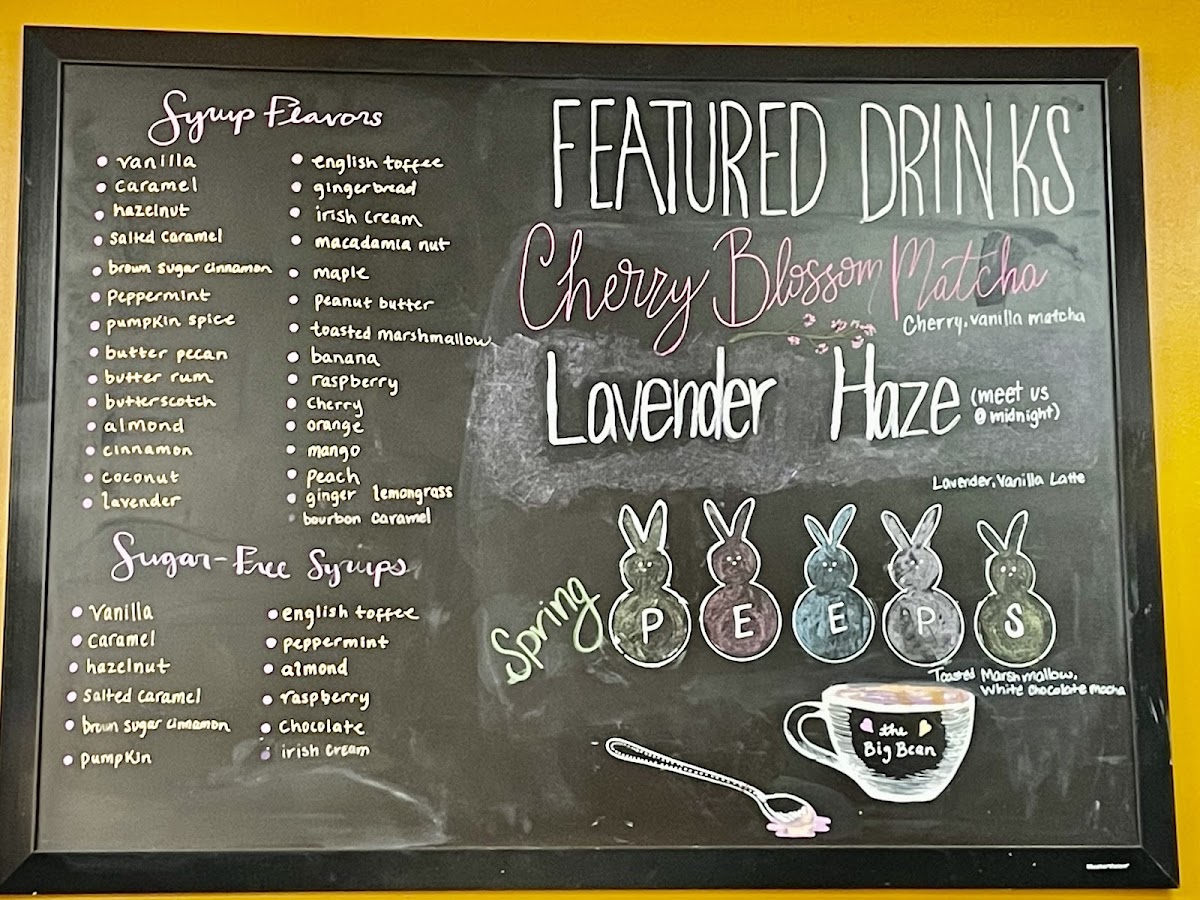 Syrup Flavors
vanilla
caramel
hazelnut
salted caramel
brown sugar cinnamon
peppermint
pumpkin spice
butter pecan
butter rum
butterscotch
almond
cinnamon
coconut
lavender
english toffee
gingerbread
irish cream
macadamia nut
maple
peanut butter
toasted marshmallow
banana
raspberry
Cherry
orange
mango
peach
ginger lemongrass
bourbon caramel
Sugar-Free Syrups
Vanilla
Caramel
hazelnut
salted caramel
brown sugar cinnamon
pumpkin
english toffee
peppermint
almond
raspberry
Chocolate
irish cream
FEATURED DRINKS
Cherry Blossom Matcha
Cherry, vanilla matcha
Lavender Haze (meet us
@ midnight)
Lavender, Vanilla Latte
Spring PEEPS
Toasted Marshmallow,
White chocolate mocha
the
Big Bean